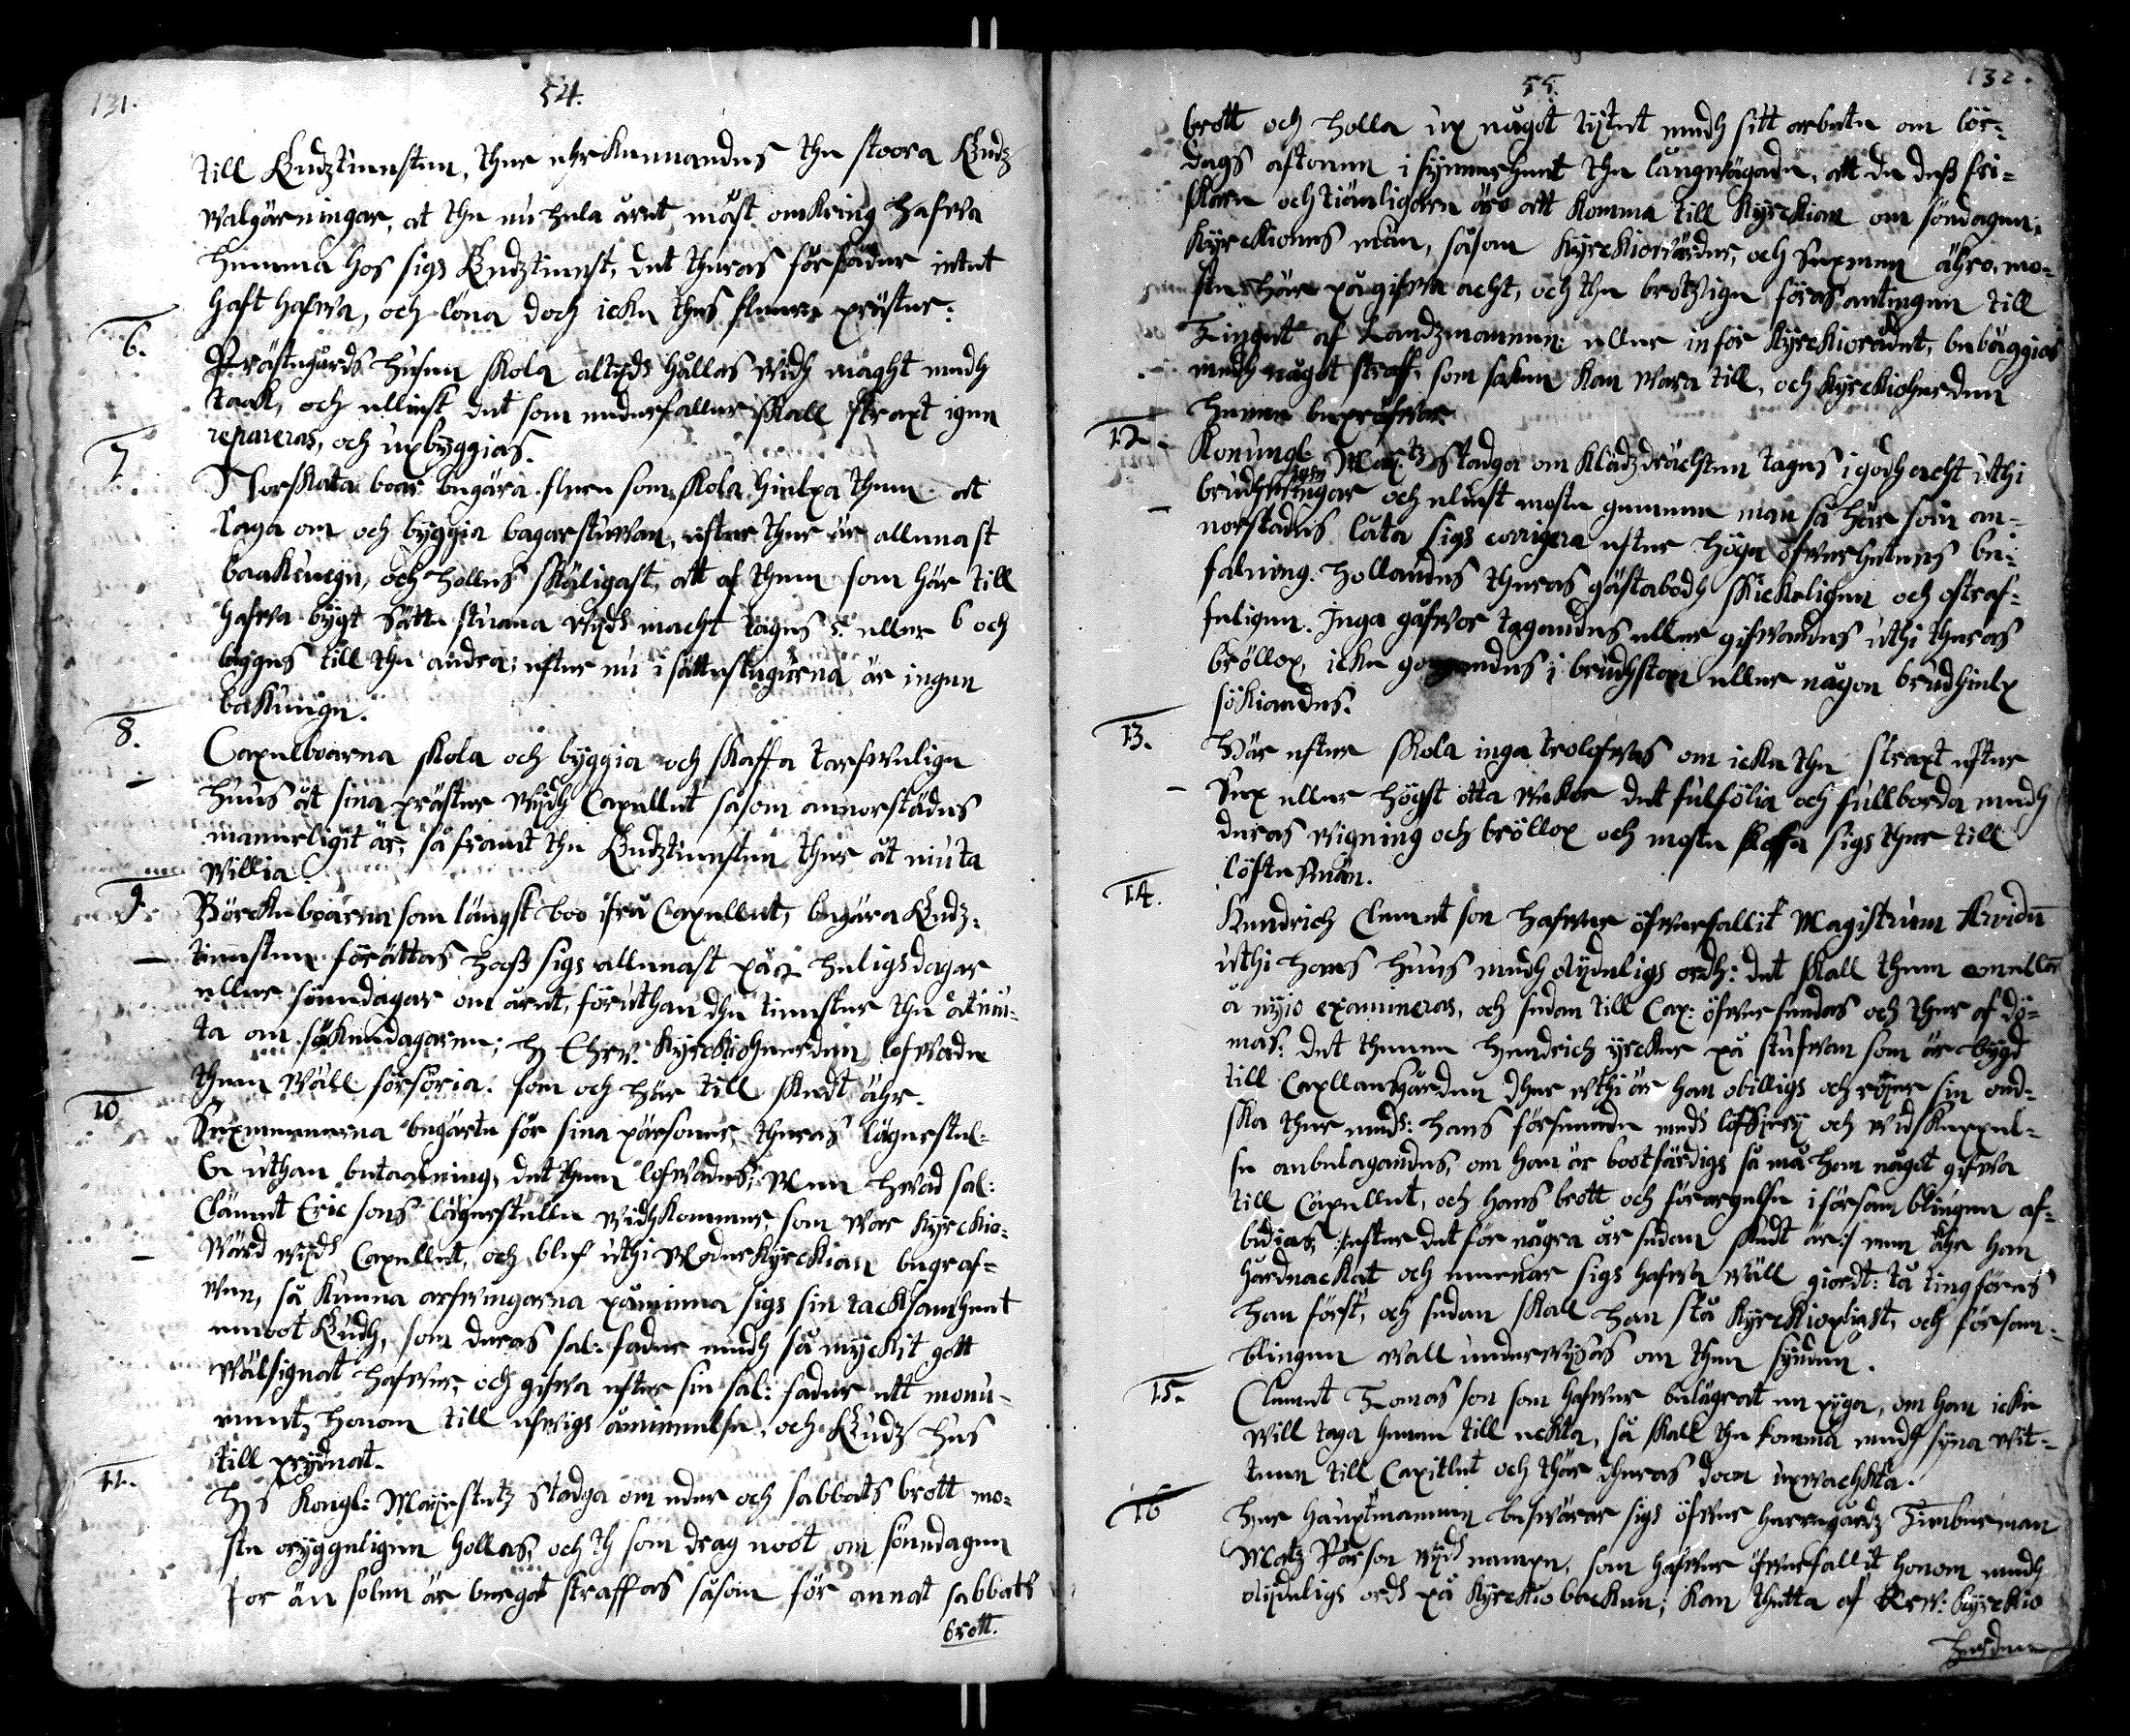 131.
54.
till Gudztiensten, ther ehrkennandes the stoora Gudz
walgärningar, at the nu hela året måst omkring hafwa
hemma hos sigh Gudztienst, det theras förfäder intet
haft hafwa, och löna doch icke thes flere präster.
6. Prästegårds husen skola altydh hållas widh macht medh
taak, och elliest det som nederfaller skall straxt igen
repareras, och upbyggias.
7. Norskata boar begära flere som skola hielpa them att
taga om och byggia bagarstuwan, efter ther är allenast
baakuegn, och holles skäligast, att af them som här till
hafwa bygt Sätte stuana wydh macht tages 5 eller 6 och
lägges till the andra; efter nu i sättestugurna är ingen
bakuugn.
8. Capelboarna skola och byggia och skaffa tarfwelige
huus åt sina präster wydh Capellet såsom annorstädes
manerligit är, så framt the Gudztiensten ther åt niuta
willia.
9. Börckeboarna som längst boo ifrå Capellet, begära Gudz-
tiensten förättas hooss sigh allenast på 2 heligsdagar
eller sönndagar om året, föruthan dhe tienster the åtniu-
ta om sökendagarne; h Ehrw: Kyrckioherden lofwade
them wäll försöria. som och här till skedt ähr.
10 Sexmennerna begärte för sina pärsoner, theras lägerstel-
le uthan betaalning, det them lofwades; Men hwad sal:
Clämet Ericsons lägerstelle widhkommer, som war kyrckio-
wärd wydh Capellet, och blef uthi Moderkyrckian begraf-
wen, så kunna arfwingarna påminna sigh sin tacksamheet
emoot Gudh, som deras sal: fader medh så myckit gott
wälsignat hafwer, och gifwa efter sin sal: fader ett monu-
mentz honom till ewigh åminnelse, och Gudz hus
till prydnat.
11. H: Kongl: Mayestetz stadga om eder och sabbats brott mo-
ste oryggeligen hollas, och th som drag noot om sönndagen
för än solen är bergat straffas såsom för annat sabbats
brott.
55.
132.
brott och holla up något tytet medh sitt arbete om lör-
dags aftonen i synnerheet the långwägade, att de dess fri-
skare och tiänligare äro att komma till kyrckian om söndagen.
Kyrckiones män, såsom kyrckiowärder, och Sexmen ähro, mo-
ste här på gifwa acht, och the brotzlige föras antingen till
Tinget af Landzmannen: eller inför kyrckiorådet, beläggias
medh något straff, som saken kan wara till, och kyrckioherden
henne bepröfwar.
12. Konungl: May:tz Stadga om klädedrächten tages i godh acht uthi
brudhstugar och elliest moste gemene man så här som an-
norstades låta sigh corrigera efter höga öfwerhetens be-
falning. hollandes theras gästabodh skickeligen och ostraf-
feligen. Inga gåfwor tagandes eller gifwandes uthi theras
bröllop, icke görandes i brudhstoen eller någon brudhielp
sökiandes.
13. Här efter skola inga trolofwas om icke the straxt efter
Sex eller högst otta wekor det fulfölia och fullborda medh
deras wigning och bröllop och moste skaffa sigh ther till
löftesmän.
14. Hendrich Clemetson hafwer öfwerfallit Magistrum Arvidum
uthi hans huus medh olydeligh ordh: det skall them emellan
å nyio examineras, och sedan till Cap: öfwersendas och ther af dö-
mas: det thenne Hendrich yrcker på stufwan som är bygd
till Capllansgården dher uthi är han obilligh och röjer sin ond-
ska ther medh: hans försmäde medh löfskjery och widskeppel-
se anbelagandes, om han är bootfärdigh så må han något gifwa
till Capellet, och hans brott och förargelse i församblingen af-
bidias, :/ efter det för några år sedan skedt är :/ men ähr han
hårdnackat och meenar sigh hafwa wäll giordt: Tå tingföres
han först, och sedan skall han stå kyrckiopligt, och försam-
blingen wall underwysas om then synden.
15. Clemet Tomasson som hafwer belägrat en pyga, om han icke
will taga henne till eckta, så skall the komma medh syna wit-
tnen till Capitlet och thär theras doom upwachta.
16 Her hauptmannen beswärar sigh öfwer herregårdz Timberman
Matz Pärson wydh nampn, som hafwer öfwerfallit honom medh
olydeligh ordh på kyrckiobacken; kan thetta af Rew: kyrckio
herden